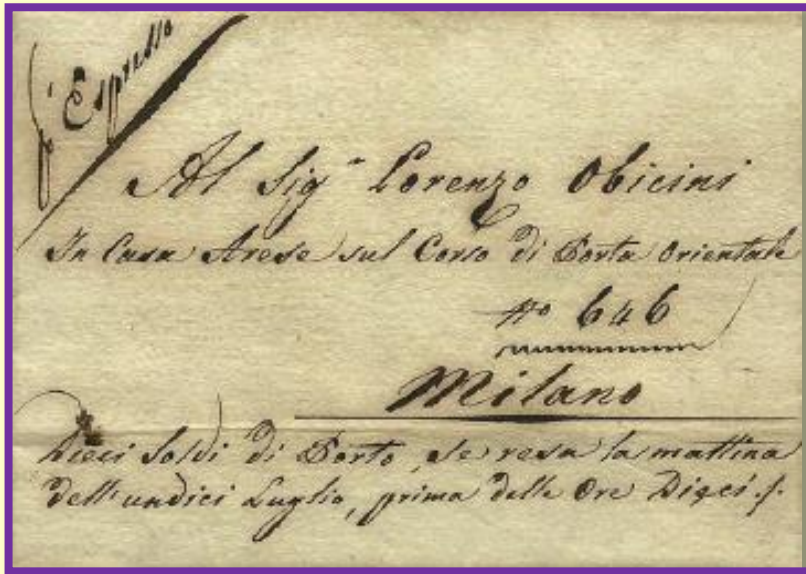 p. Espresso
Al Sig.r Lorenzo Obicini
In Casa Arese sul Corso di Porta Orientale
No 646
Milano
Dieci Soldi di Porto, se resa la mattina
dell'undici Luglio, prima delle Ore Dieci.